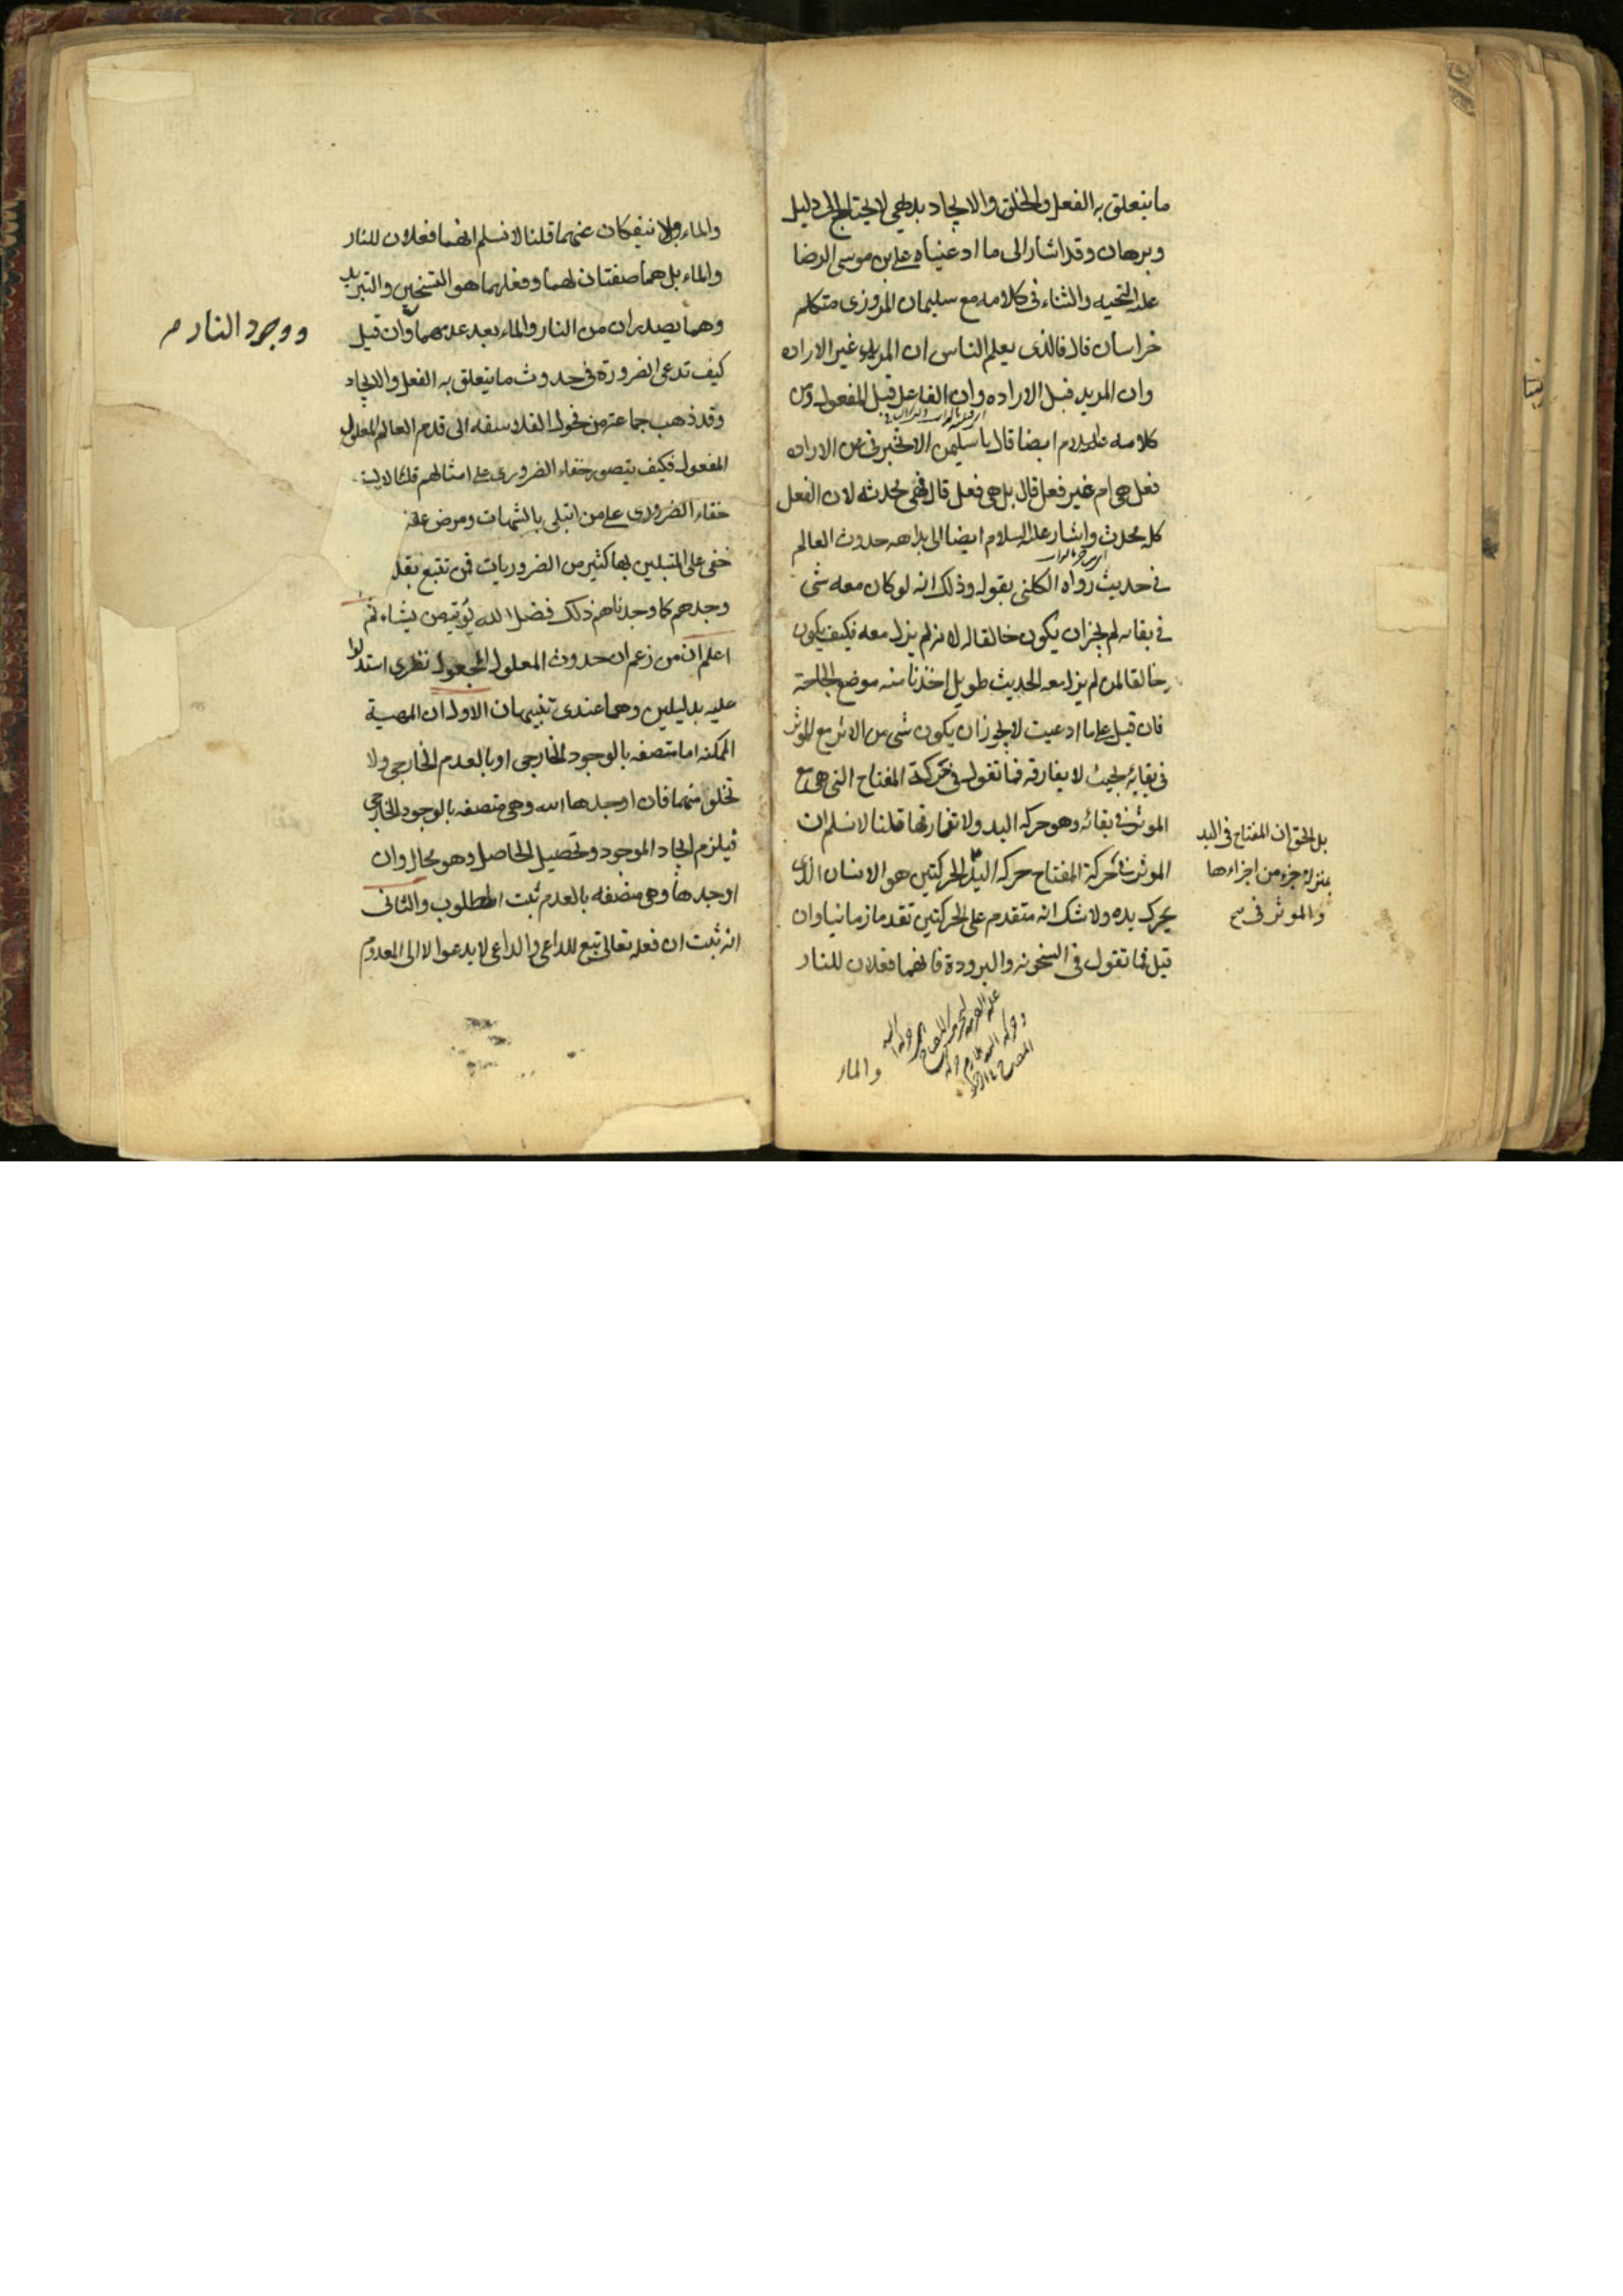 ما يتعلق به الفعل والخلق والايجاد بديهي لا يحتاج الى دليل
وبرهان وقد اشار الى ما ادعيناه على بن موسى الرضا
عليه التحيه والثناء فى كلامه مع سليمان المروزى متكلم
خراسان قال فالذى يعلم الناس ان المريد غير الاراده
وان المريد قبل الاراده وان الفاعل قبل المفعول ومن
كلامه عليه السلام ايضا قال يا سليمن الا تخبرنى عن الاراده
فعل هى ام غير فعل قال بل هى فعل قال فهى محدثه لان الفعل
كله محدث واشار عليه السلام ايضا الى بداهه حدوث العالم
فى حديث رواه الكلينى بقوله وذلك انه لو كان معه شى
فى بقائه لم يجز ان يكون خالقا له لانه لم يزل معه فكيف يكون
خالقا لمن لم يزل معه الحديث طويل اخذنا منه موضع الحاجة
فان قيل على ما ادعيت لا يجوز ان يكون شى من الاثر مع الموثر
فى بقائه بحيث لا يفارقه فما تقول فى حركة المفتاح التى هى مع
الموثر فى بقائه وهو حركه اليد ولا تفارقها قلنا لا نسلم ان
الموثر فى حركة المفتاح حركه اليد الحركتين هو الانسان الذى
يحرك يده ولا شك انه متقدم على الحركتين تقدما زمانيا وان
قيل فما تقول فى السخونه والبرودة فانهما فعلان للنار
بل الحق ان المفتاح فى اليد
بمنزله جزء من اجزاءها
والموثر فى
والماء
والماء ولا ينفكان عنهما قلنا لا نسلم انهما فعلان للنار
والماء بل هما صفتان لهما وفعلهما هو التسخين والتبريد
وهما يصدران من النار والماء بعد عدمهما وان قيل
ووجود النار
كيف تدعى الضرورة فى حدوث ما يتعلق به الفعل والايجاد
وقد ذهب جماعته من فحول الفلاسفه الى قدم العالم المعلول
المفعول فكيف يتصور خفاء الضرورى على امثالهم قلنا
خفاء الضرورى على من ابتلى بالشبهات ومرض عقله
خفى على المبتلين بها كثير من الضروريات فمن تتبع
وجدهم كما وجدناهم ذلك فضل الله يؤتيه من يشاء ثم
اعلم ان من زعم ان حدوث المعلول المجعول نظرى استدلوا
عليه بدليلين وهما عندى تنبيهان الاول ان المهية
الممكنه اما متصفه بالوجود الخارجى او بالعدم الخارجى ولا
تخلو منهما فان اوجدها الله وهى متصفه بالوجود الخارجى
فيلزم ايجاد الموجود وتحصيل الحاصل وهو محال وان
اوجدها وهى متصفه بالعدم ثبت المطلوب والثانى
انه ثبت ان فعله تعالى تبع للداعى والداعى لا يدعوا الا الى المعدوم